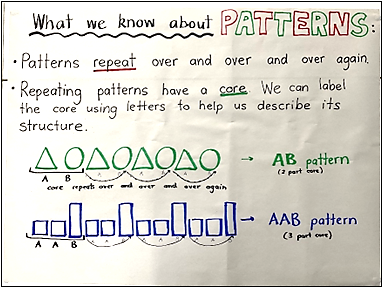 What we know about PATTERNS:
• Patterns repeat over and over and over again.
• Repeating patterns have a core. We can label
the core using letters to help us describe its
structure.
→ AB pattern
(2 part core)
A B
core repeats over and over and over again
→ AAB pattern
(3 part core)
A A B